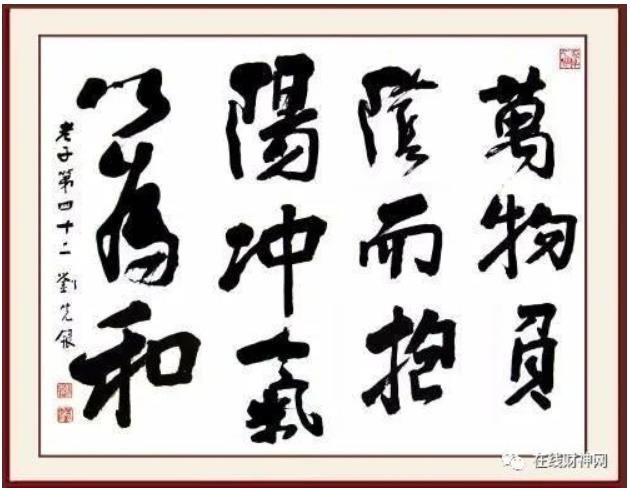 萬物負
陰而抱
陽冲氣
以為和
老子第四十二 劉先銀
在线财神网